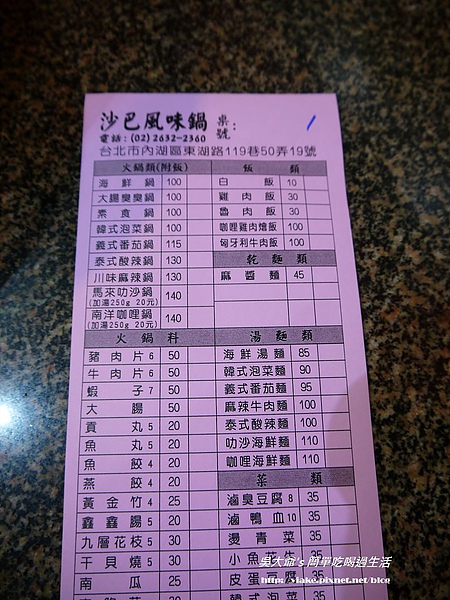 沙巴風味鍋 桌號:
電話:(02) 2632-2360
台北市內湖區東湖路119巷50弄19號
火鍋類(附飯)
海鮮鍋 100
大腸臭臭鍋 100
素食鍋 100
韓式泡菜鍋 100
義式番茄鍋 115
泰式酸辣鍋 130
川味麻辣鍋 130
馬來叻沙鍋 140
(加湯250g 20元)
南洋咖哩鍋 140
(加湯250g 20元)
火鍋料
豬肉片6 50
牛肉片6 50
蝦子7 50
大腸 50
貢丸5 20
魚丸5 20
魚餃4 20
燕餃4 20
黃金竹4 25
鑫鑫腸5 20
九層花枝5 30
干貝燒5 30
南瓜 25
飯類
白飯 10
雞肉飯 30
魯肉飯 30
咖哩雞肉燴飯 100
匈牙利牛肉飯 100
乾麵類
麻醬麵 45
湯麵類
海鮮湯麵 85
韓式泡菜麵 90
義式番茄麵 95
麻辣牛肉麵 100
泰式酸辣麵 100
叻沙海鮮麵 110
咖哩海鮮麵 110
菜類
滷臭豆腐8 35
滷鴨血10 35
燙青菜 35
小魚花生 35
皮蛋豆腐 35
韓式泡菜 35
吳大爺's 簡單吃喝過生活